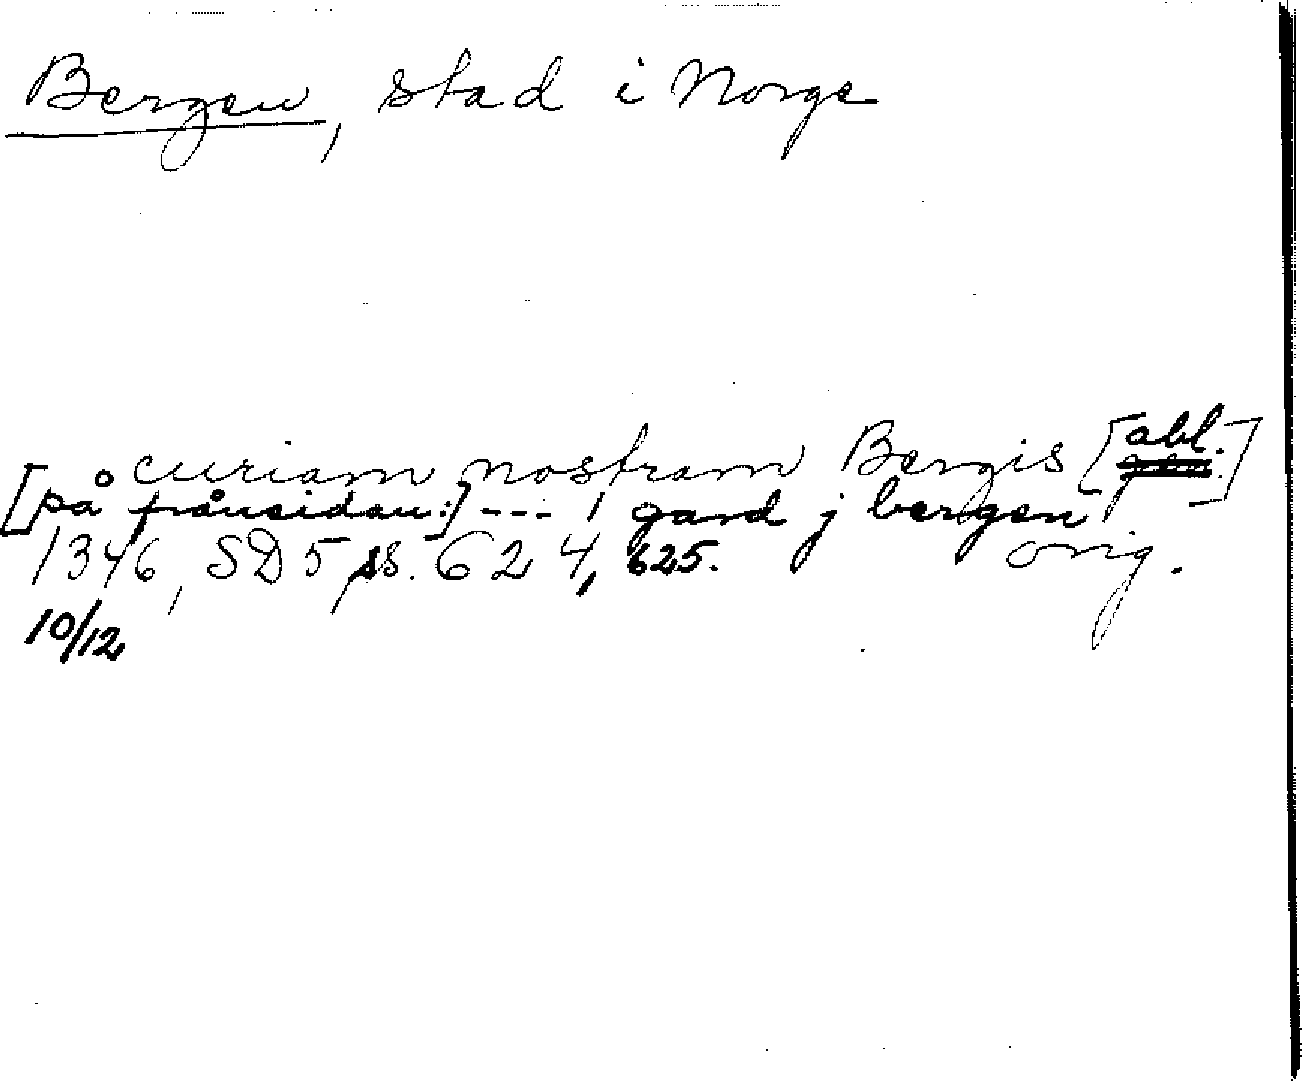 Bergen, stad i Norge
curiam nostram Bergis [abl.]
[på frånsidan:] --- gard j bergen
1346, SD 5, ss. 624, 625. orig.
10/12